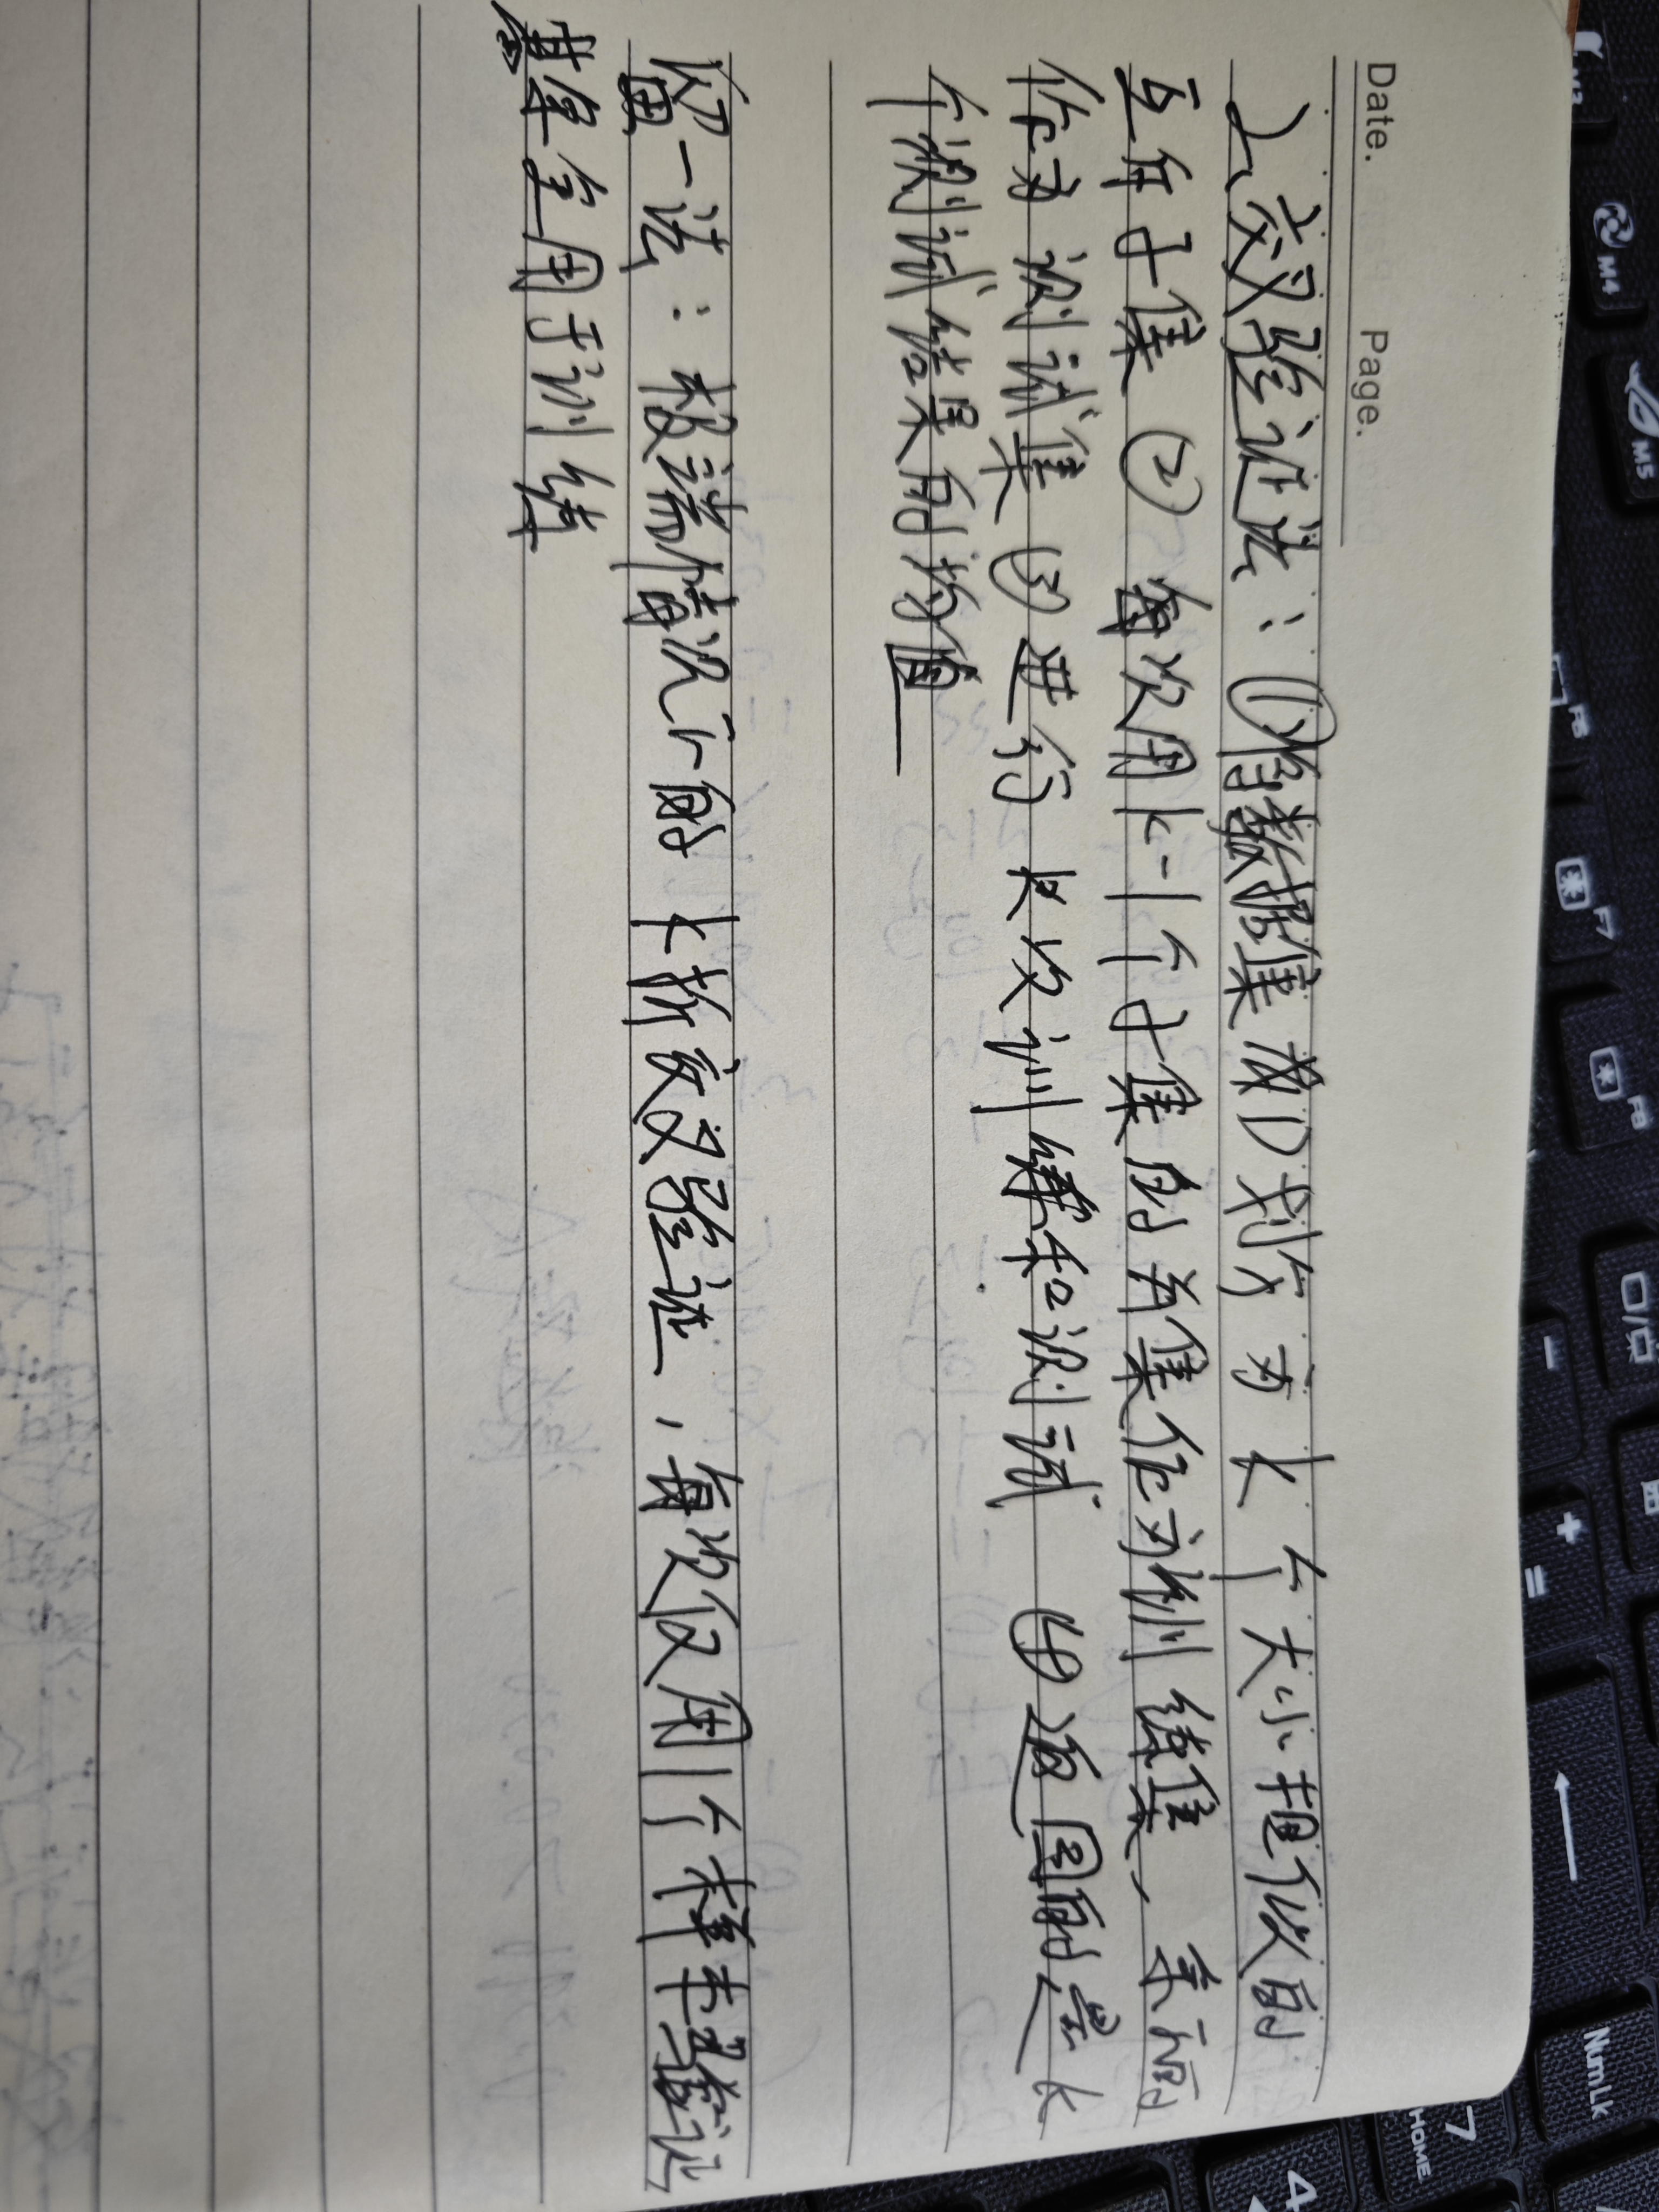 Date.
Page.
2、交叉验证法：①将数据集成D划分为k个大小相似的
互斥子集 ②每次用k-1个子集的并集作为训练集、余下的
作为测试集 ③进行k次训练和测试 ④返回的是k
个测试结果的均值
留一法：极端情况下的k折交叉验证，每次仅用1个样本当验证
其余全用于训练
M4
M5
F7
F8
NumLk
7
HOME
4